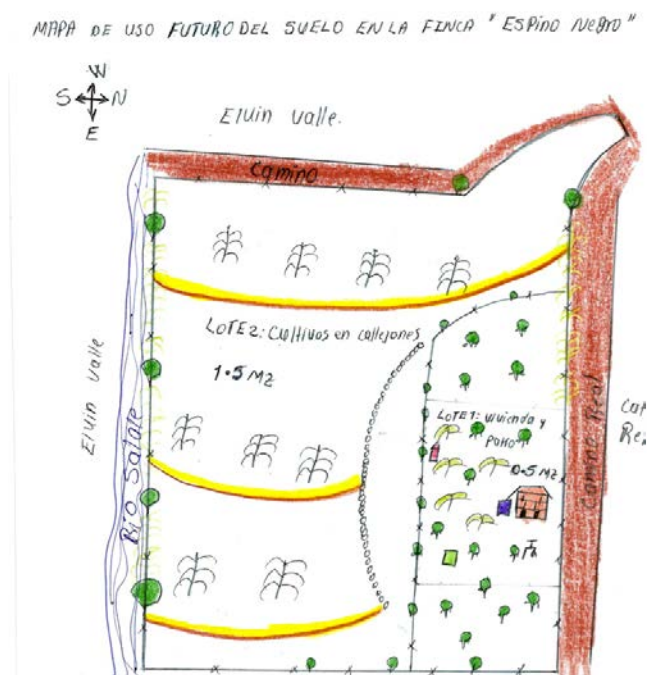 MAPA DE USO FUTURO DEL SUELO EN LA FINCA "ESPINO NEGRO"
W
S N
E
Eluin Valle.
Camino
LOTE2: Cultivos en callejones
1.5 MZ
Eluin Valle
Rio Salale
LOTE1: vivienda y
Patio
0.5 MZ
Camino Real